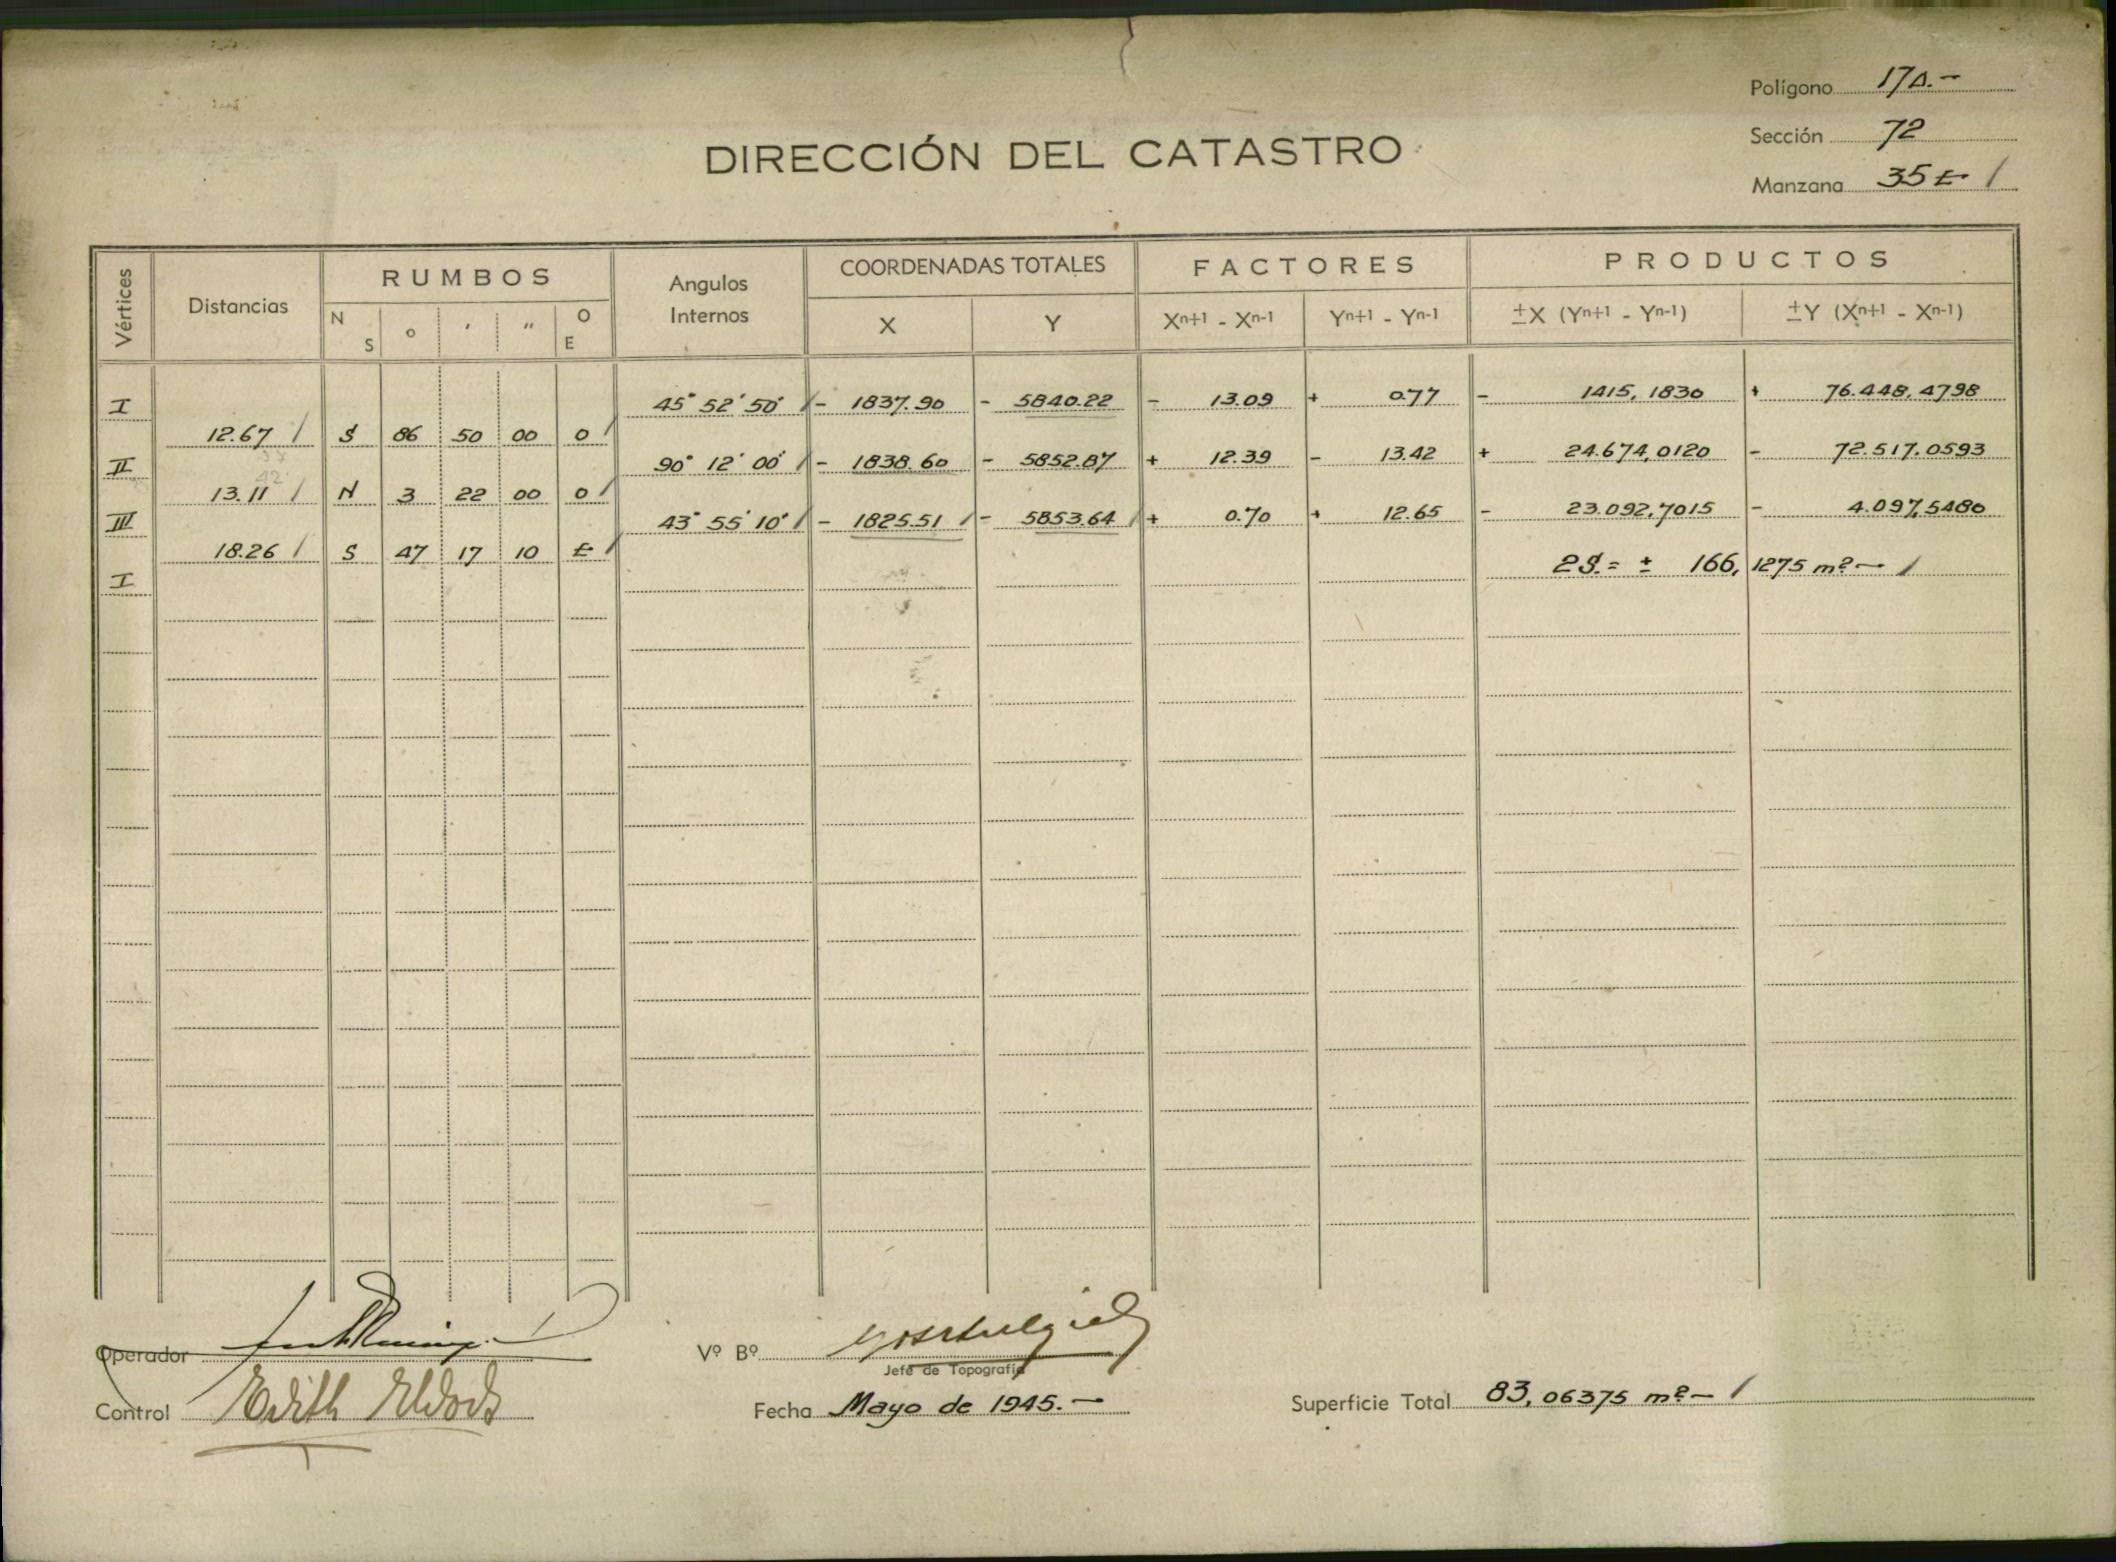 Polígono 17A.-
Sección 72
DIRECCIÓN DEL CATASTRO
Manzana 35 E /
Vértices Distancias RUMBOS Angulos Internos COORDENADAS TOTALES FACTORES PRODUCTOS
N S ° ' " O E X Y Xn+1 - Xn-1 Yn+1 - Yn-1 ±X (Yn+1 - Yn-1) ±Y (Xn+1 - Xn-1)
I 45° 52' 50" / - 1837.90 - 5840.22 - 13.09 + 0.77 - 1415,1830 + 76.448,4798
12.67 / S 86 50 00 O /
II 90° 12' 00" / - 1838.60 - 5852.87 + 12.39 - 13.42 + 24.674,0120 - 72.517.0593
13.11 / N 3 22 00 O /
III 43° 55' 10" / - 1825.51 / - 5853.64 / + 0.70 + 12.65 - 23.092,7015 - 4.097,5480
18.26 / S 47 17 10 E /
I 2S.= ± 166,1275 m²- /
Operador
Vº Bº
Jefe de Topografía
Control Edith
Fecha Mayo de 1945.-
Superficie Total 83,06375 m²- /